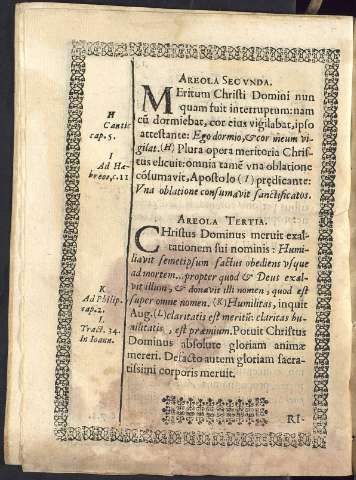 AREOLA SECVNDA.
MEritum Christi Domini nun
quam fuit interruptum: nam
cū dormiebat, cor eius vigilabat, ipso
attestante: Ego dormio, & cor meum vi-
gilat. (H) Plura opera meritoria Chris-
tus elicuit: omnia tamē vna oblatione
cōsumavit, Apostolo (I) prędicante:
Vna oblatione consumavit sanctificatos.
H
Cantic.
cap. 5.
I
Ad Hæ-
breos, c. 11
AREOLA TERTIA.
CHristus Dominus meruit exal-
tationem sui nominis: Humi-
liavit semetipsum factus obediens vsque
ad mortem...propter quod & Deus exal-
vit illum, & donavit illi nomen, quod est
super omne nomen. (K) Humilitas, inquit
Aug. (L) claritatis est meritū: claritas hu-
militatis, est præmium. Potuit Christus
Dominus absolute gloriam animæ
mereri. Defacto autem gloriam sacra-
tissimi corporis meruit.
K.
Ad Philip.
cap. 2.
L.
Tract. 34.
In Ioann.
RI-